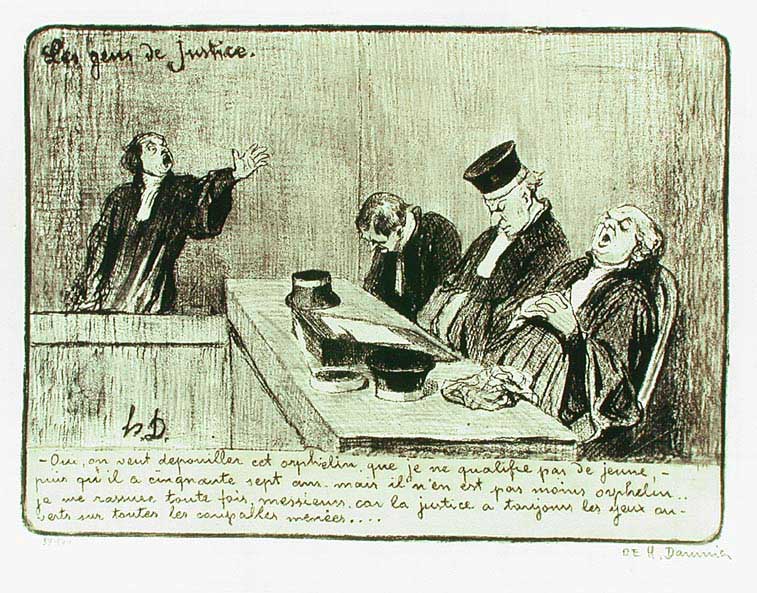 Les gens de Justice.
h.D.
- Oui, on veut dépouiller cet orphelin, que je ne qualifie pas de jeune, -
puis qu'il a cinquante sept ans. mais il n'en est pas moins orphelin..
je me rassure toute fois, messieurs, car la justice a toujours les yeux ou-
verts sur toutes les coupables menées....
DE H. Daumier